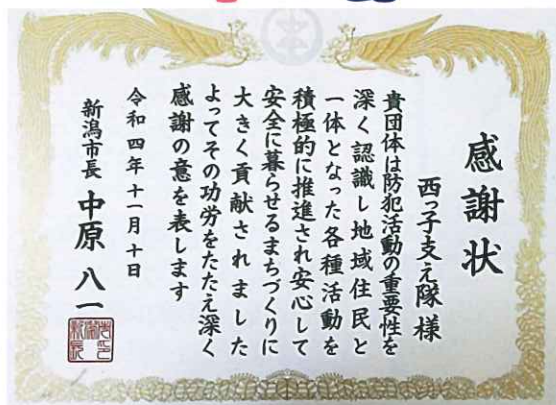 感謝状
西っ子支え隊様
貴団体は防犯活動の重要性を
深く認識し地域住民と
一体となった各種活動を
積極的に推進され安心して
安全に暮らせるまちづくりに
大きく貢献されました
よってその功労をたたえ深く
感謝の意を表します
令和四年十一月十日
新潟市長 中原八一